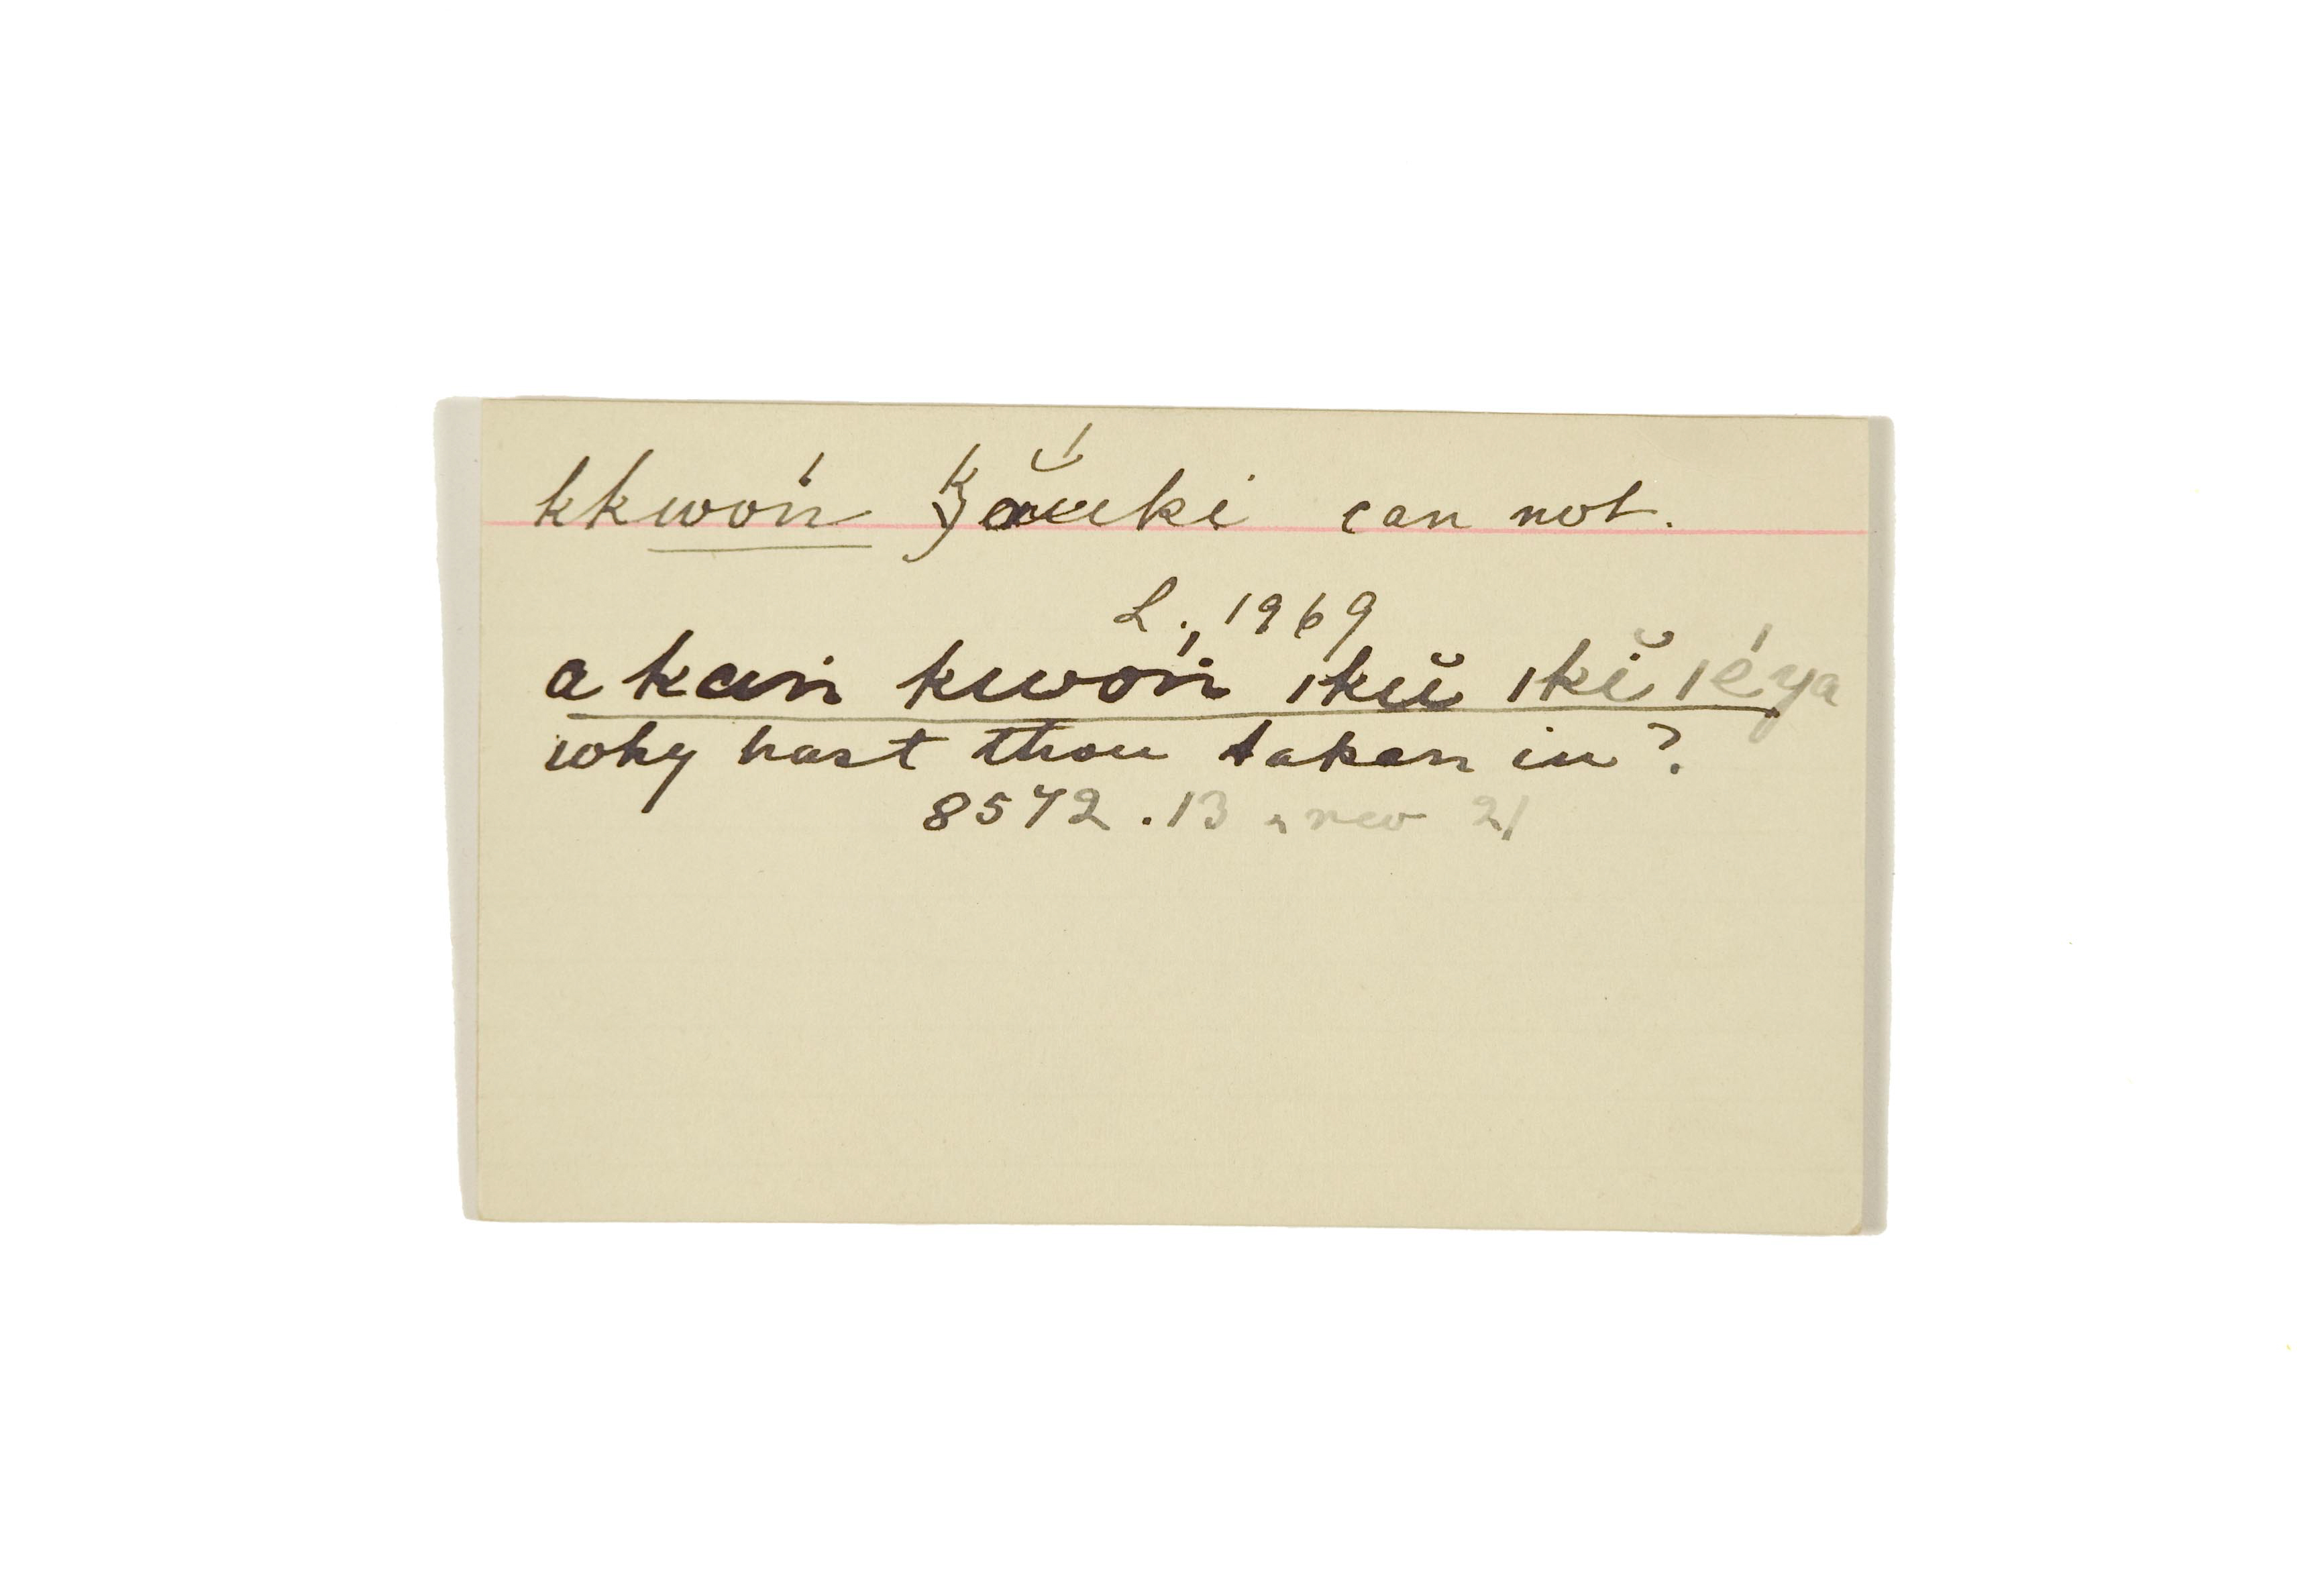 kkwoń kăúki can not.
L., 1969
a kań kwoń ikŭ ikĭ iéya
why hast thou taken in?
8572.13, rev 21